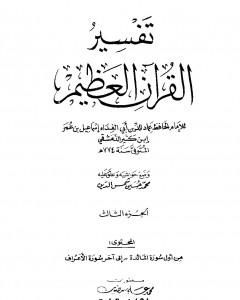 تفسير
القرآن العظيم
للإمام الحافظ عماد الدين أبي الفداء إسماعيل بن عمر
ابن كثير الدمشقي
المتوفى سنة ٧٧٤هـ
وضع حواشيه وعلق عليه
محمد حسين شمس الدين
الجزء الثالث
المحتوى:
من أول سورة المائدة - إلى آخر سورة الأعراف
منشورات